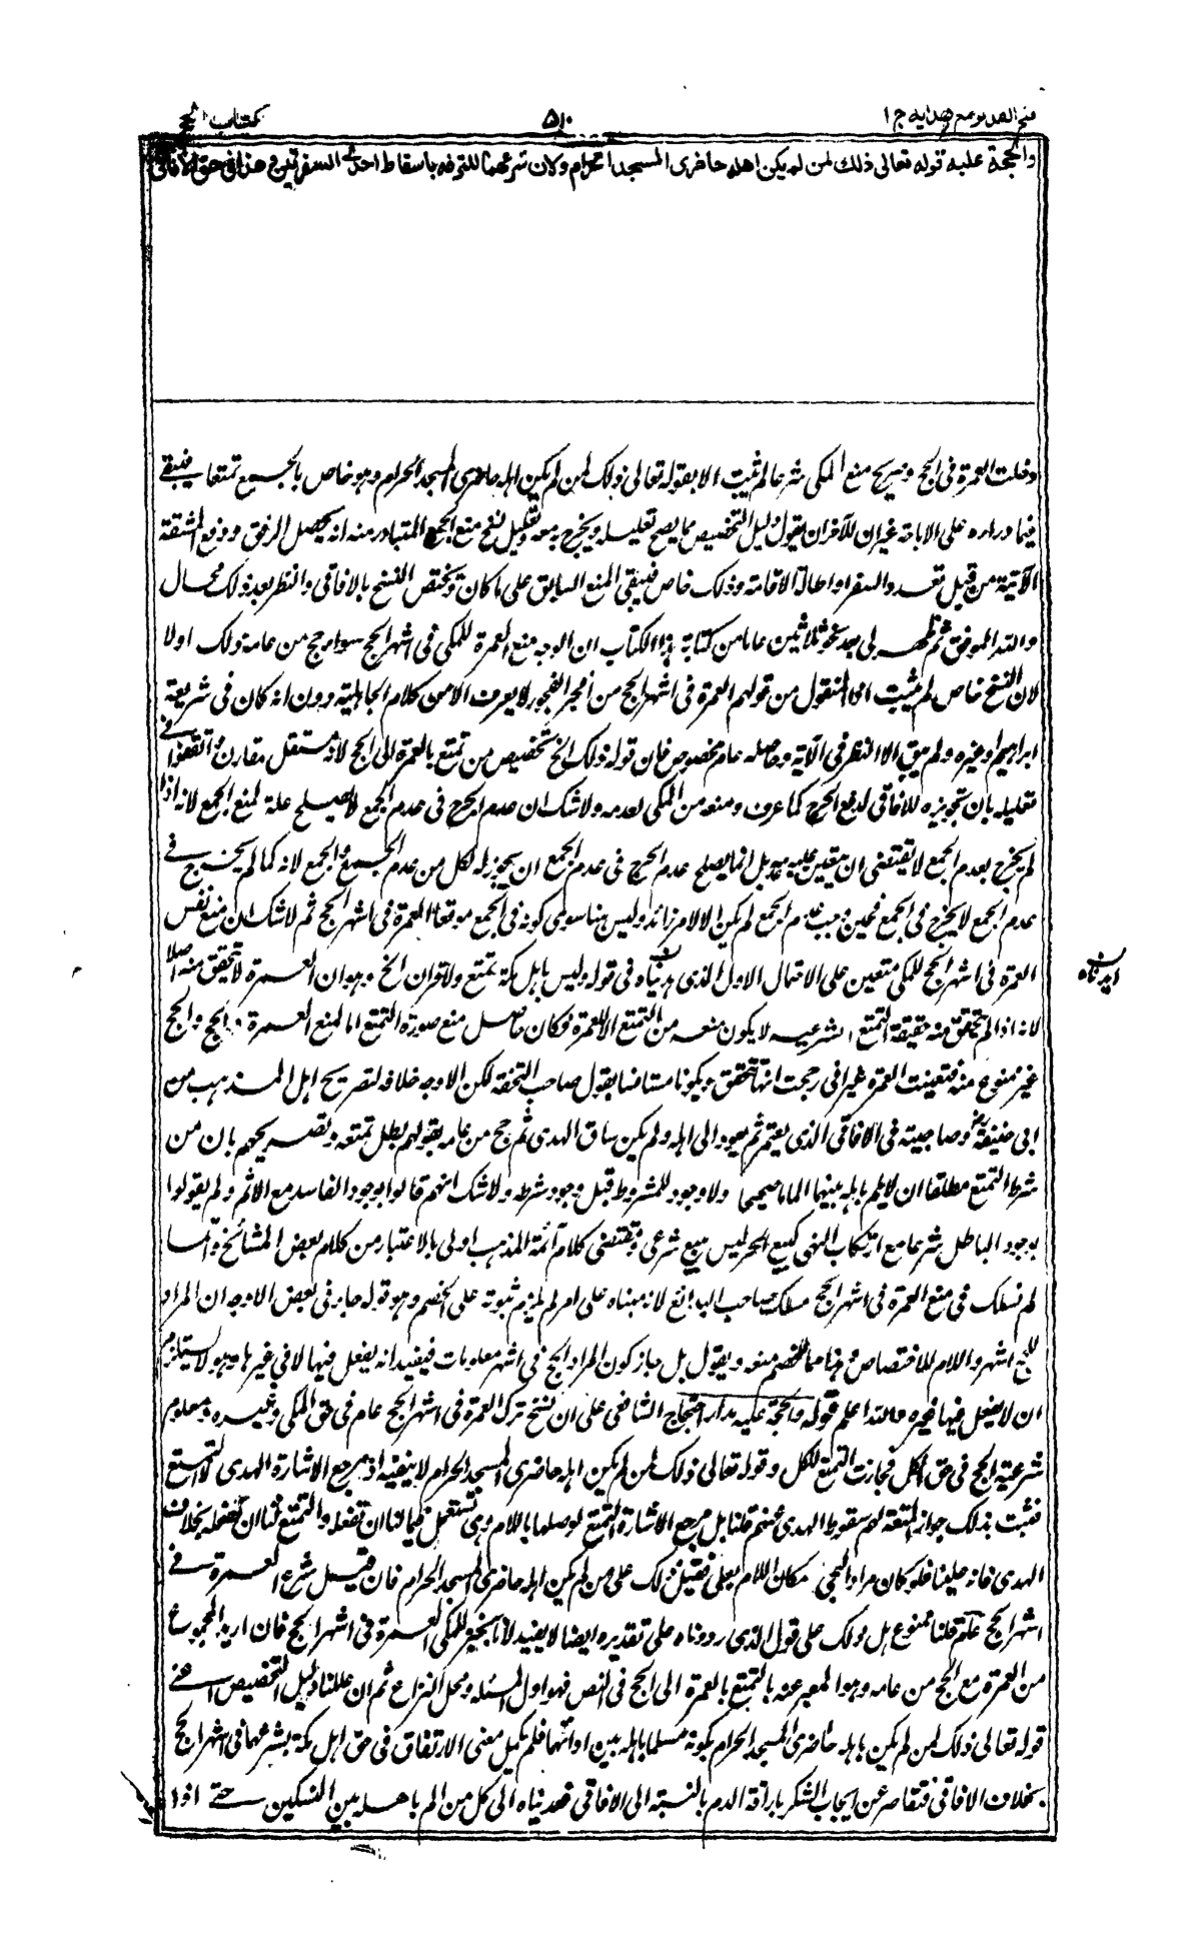 فتح القدير مع هدایه ج ۱
۵۱۰
كتاب الحج
والحجة عليه قوله تعالى ذلك لمن لم يكن اهله حاضرى المسجد الحرام ولان شرعهما للترفه باسقاط احدى السفرتين وهذا فى حق الأفاقى
دخلت العمرة فى الحج وصريح منع المكى شرعا لم يثبت الا بقوله تعالى ذلك لمن لم يكن اهله حاضرى المسجد الحرام وهو خاص بالجمع تمتعا فيبقى
فيما وراءه على الاباحة غير ان للآخر ان يقول دليل التخصيص مما يصح تعليله ويخرج به معه وتعليل منع الجمع المتبادر منه انه يحصل الرفق ودفع المشقة
الآتية من قبل تعدد السفر او اطالة الاقامة وذلك خاص فيبقى المنع السابق على ما كان ويختص النسخ بالافاقى والنظر بعد ذلك مجال
والله الموفق ثم ظهر لى بعد نحو ثلاثين عاما من كتابة هذا الكتاب ان الوجه منع العمرة للمكى فى اشهر الحج سواء حج من عامه ذلك اولا
لان النسخ خاص لم يثبت اذ المنقول من قولهم العمرة فى اشهر الحج من افجر الفجور لا يعرف الا من كلام الجاهلية دون انه كان فى شريعة
ابراهيم او غيره ولم يبق الا النظر فى الآية وحاصله عام مخصوص فان قوله ذلك الخ تخصيص من تمتع بالعمرة الى الحج لانه مستقل مقارن واتفقوا فى
تعليله بان تجويزه للافاقى لدفع الحرج كما عرف ومنعه من المكى لعدمه ولا شك ان عدم الحرج فى عدم الجمع لا يصلح علة لمنع الجمع لانه اذا
لم يحرج بعدم الجمع لا يقتضى ان يتعين عليه عدمه بل انما يصلح عدم الحرج فى عدم الجمع ان يجوز له كل من عدم الجمع والجمع لانه كما لم يحرج فى
عدم الجمع لا يحرج فى الجمع فحين وجب عدم الجمع لم يكن الا لامر زائد وليس هنا سوى كونه فى الجمع موقعا العمرة فى اشهر الحج ثم لا شك ان منع نفس
العمرة فى اشهر الحج للمكى متعين على الاحتمال الاول الذى ابدیناه فى قوله وليس باهل مكة تمتع ولا قران الخ وهو ان العمرة لا تتحقق منه اصلا
ابدیناه
لانه اذا لم تتحقق منه حقيقة التمتع الشرعيه لا يكون منعه من التمتع الا للعمرة فكان حاصل منع صورة التمتع اما لمنع العمرة او الحج والحج
غير ممنوع منه فتعينت العمرة غير انى رجحت انها تتحقق ويكون مستانسا بقول صاحب التحفة لكن الاوجه خلافه لتصريح اهل المذهب من
ابى حنيفة وصاحبيه فى الافاقى الذى يعتمر ثم يعود الى اهله ولم يكن ساق الهدى ثم حج من عامه بقولهم بطل تمتعه وتصريحهم بان من
شرط التمتع مطلقا ان لا يلم باهله بينهما الماما صحيحا ولا وجود للمشروط قبل وجود شرطه ولا شك انهم قالوا بوجود الفاسد مع الاثم ولم يقولوا
بوجود الباطل شرعا مع ارتكاب النهى كبيع الحر ليس ببيع شرعى ومقتضى كلام آئمة المذهب اولى بالاعتبار من كلام بعض المشائخ وانما
لم نسلك فى منع العمرة فى اشهر الحج مسلك صاحب البدائع لانه مبناه على امر لم يلزم ثبوته على الخصم وهو قوله جاء فى بعض الاوجه ان المراد
للحج اشهر واللام للاختصاص وهذا مما للخصم منعه ويقول بل جاز كون المراد الحج فى اشهر معلومات فيفيد انه يفعل فيها لا فى غيرها وهو لا يستلزم
ان لا يفعل فيها غيره والله اعلم قوله والحجة عليه مدار احتجاج الشافعى على ان نسخ ترك العمرة فى اشهر الحج عام فى حق المكى وغيره ومعلوم
شرعية الحج فى حق الكل فجازت التمتع للكل وقوله تعالى ذلك لمن لم يكن اهله حاضرى المسجد الحرام لا ينفيه اذ مرجع الاشارة الهدى لا التمتع
فثبت بذلك جواز المتعة لهم وسقوط الهدى عنهم قلنا بل مرجع الاشارة التمتع لوصلها باللام وهى تستعمل فيما لنا ان نفعله والتمتع لنا ان نفعله بخلاف
الهدى فانه علينا فلو كان مرادا لجىء مكان اللام بعلى فقيل ذلك على من لم يكن اهله حاضرى المسجد الحرام فان قيل شرع العمرة فى
اشهر الحج عام قلنا ممنوع بل ذلك على قول الذى رددناه على تقديره ايضا لا يفيد لانا نجيز للمكى العمرة فى اشهر الحج فان اريد المجموع
من العمرة مع الحج من عامه وهو المعبر عنه بالتمتع بالعمرة الى الحج فى النص فهو اول المسئله ومحل النزاع ثم ان عللنا دليل التخصيص اعنى
قوله تعالى ذلك لمن لم يكن اهله حاضرى المسجد الحرام بكونه مسلما باهله بين ادائهما فلم يكمل معنى الارتفاق فى حق اهل مكة بشرعها فى اشهر الحج
بخلاف الافاقى فتقاصر عن ايجاب الشكر باراقة الدم بالنسبة الى الافاقى فعديناه الى كل من الم باهله بين النسكين حتى اذا